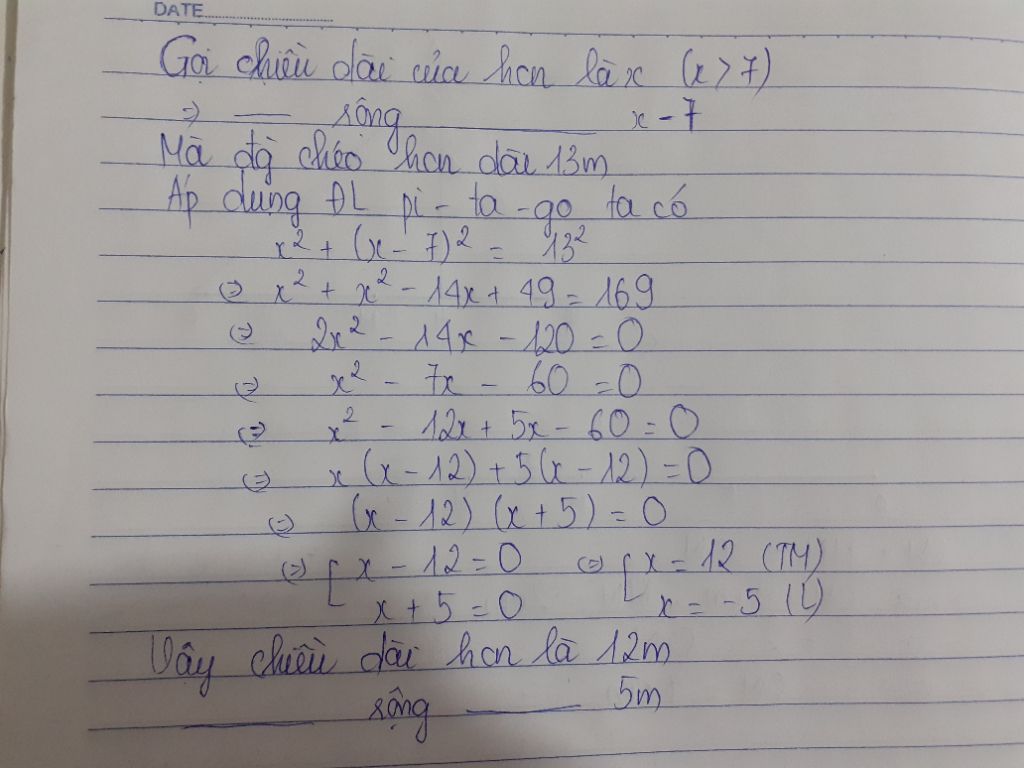 DATE
Gọi chiều dài của hcn là x (x > 7)
=> —— rộng ———— x - 7
Mà đg chéo hcn dài 13m
Áp dụng ĐL pi - ta - go ta có
x² + (x - 7)² = 13²
(=) x² + x² - 14x + 49 = 169
(=) 2x² - 14x - 120 = 0
(=) x² - 7x - 60 = 0
(=) x² - 12x + 5x - 60 = 0
(=) x (x - 12) + 5(x - 12) = 0
(=) (x - 12) (x + 5) = 0
(=) [ x - 12 = 0 (=) [ x = 12 (TM)
x + 5 = 0 x = -5 (L)
Vậy chiều dài hcn là 12m
———— rộng ——— 5m